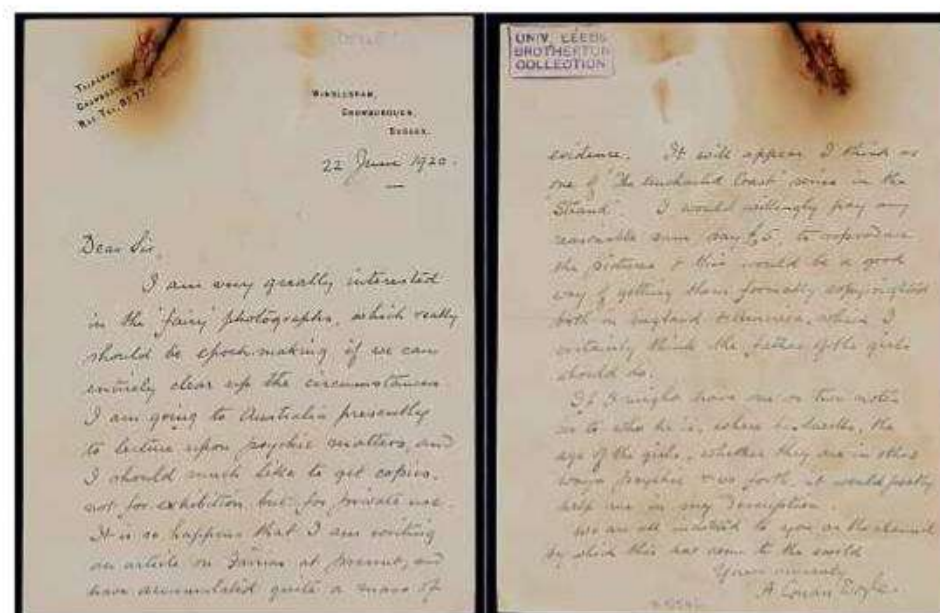 Windlesham,
Crowborough,
Sussex.
22 June 1920.
Dear Sir,
I am very greatly interested
in the 'fairy' photographs, which really
should be epoch-making if we can
entirely clear up the circumstances.
I am going to Australia presently
to lecture upon psychic matters, and
I should much like to get copies,
not for exhibition but for private use.
It so happens that I am writing
an article on Fairies at present, and
have accumulated quite a mass of
UNIV. LEEDS
BROTHERTON
COLLECTION
evidence. It will appear I think as
one of 'The Uncharted Coast' series in the
'Strand'. I would willingly pay any
reasonable sum, say £5, to reproduce
the pictures & this would be a good
way of getting them formally copyrighted
both in England & America, which I
certainly think the father of the girls
should do.
If I might have one or two notes
as to who he is, where he dwells, the
age of the girls, whether they are in other
ways psychic & so forth, it would greatly
help me in my description.
We are all indebted to you as the channel
by which this has come to the world
Yours sincerely
A Conan Doyle.